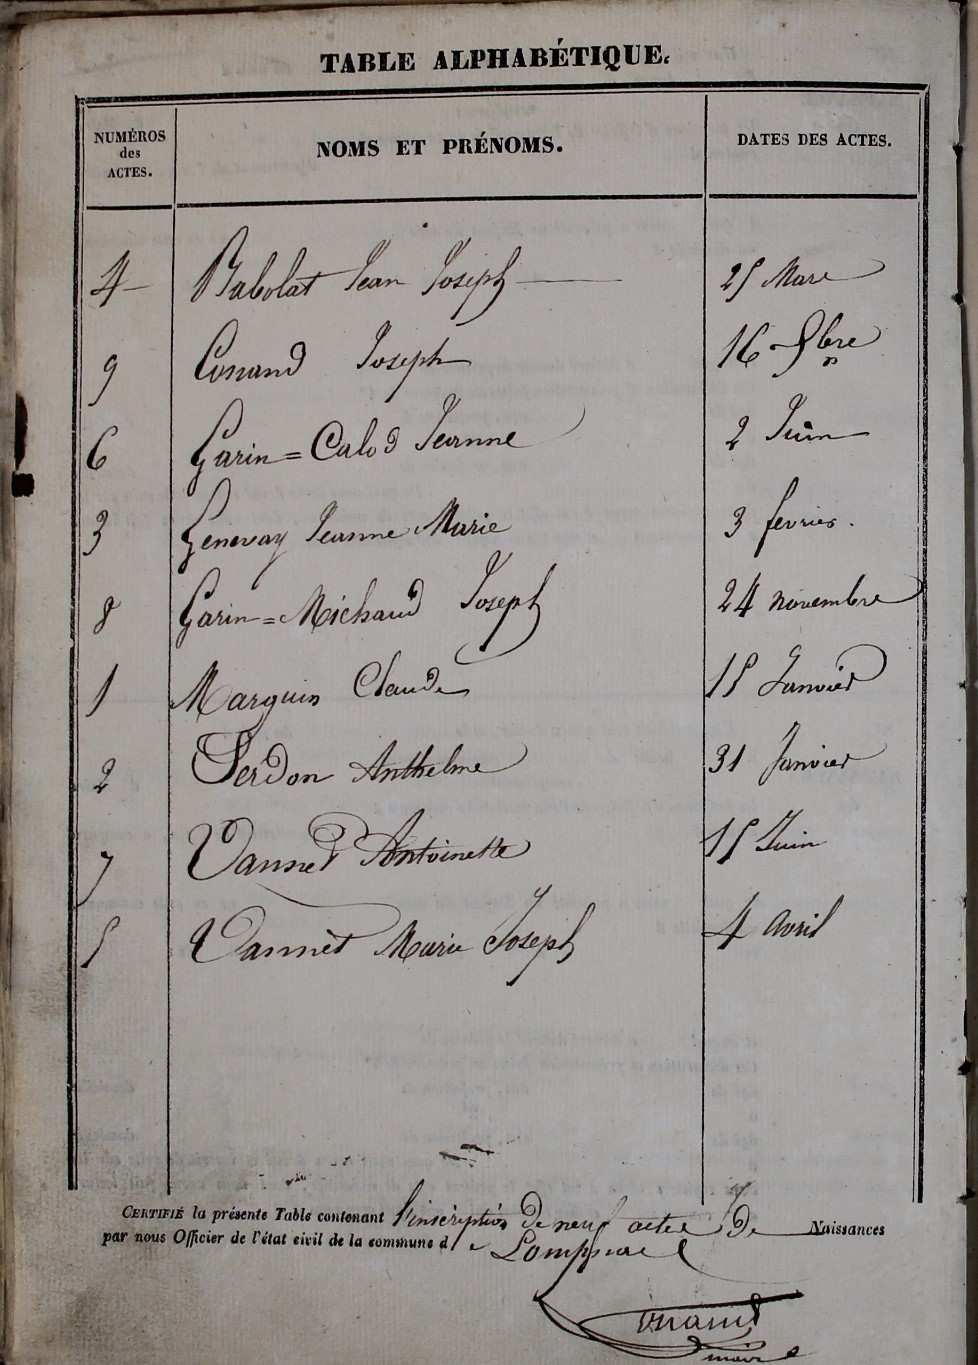 TABLE ALPHABÉTIQUE.
NUMÉROS des ACTES. NOMS ET PRÉNOMS. DATES DES ACTES.
4 Babolat Jean Joseph 25 Mars
9 Conand Joseph 16 bre
6 Garin=Calod Jeanne 2 Juin
3 Genevay Jeanne Marie 3 fevrier.
8 Garin=Michaud Joseph 24 novembre
1 Marquin Claude 15 Janvier
2 Serdon Anthelme 31 Janvier
7 Vannet Antoinette 15 Juin
5 Vannet Marie Joseph 4 avril
CERTIFIÉ la présente Table contenant l'inscription de neuf actes de Naissances
par nous Officier de l'état civil de la commune d e Lompnieu
Conand
maire